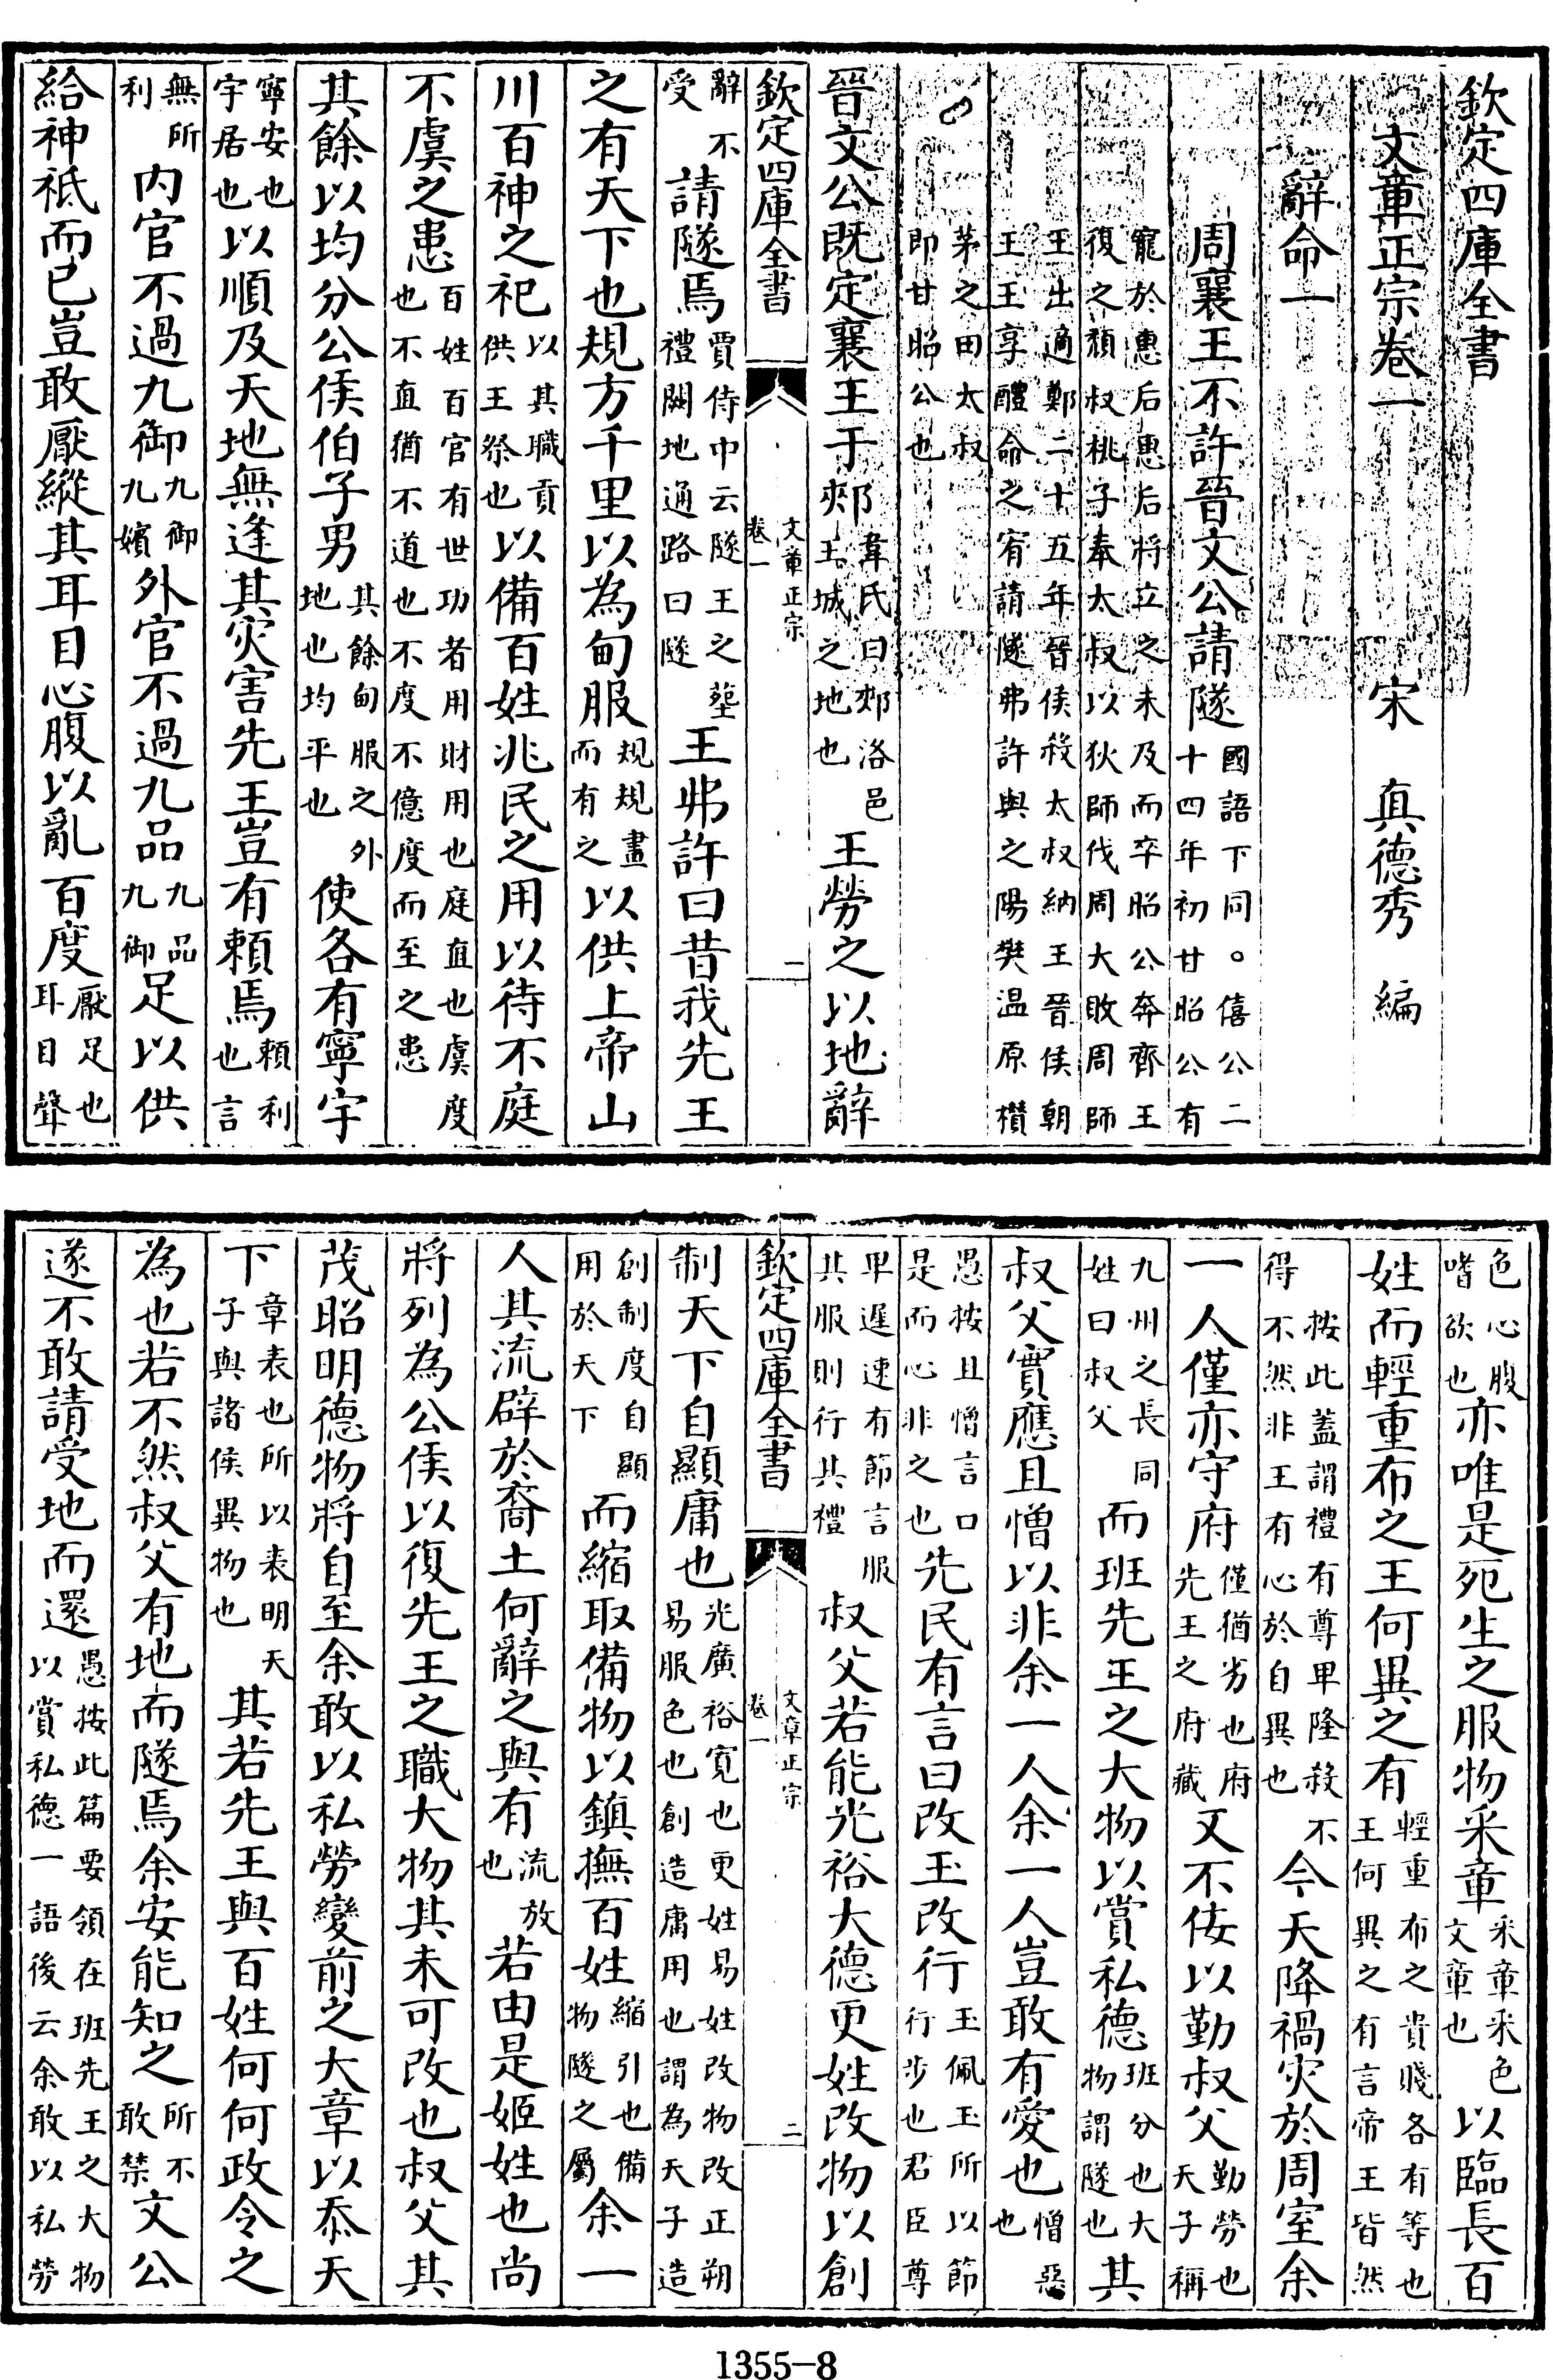 欽定四庫全書
文章正宗卷一　宋　真德秀　編
辭命一
周襄王不許晉文公請隧國語下同。僖公二十四年初甘昭公有
寵於惠后惠后將立之未及而卒昭公奔齊王復之頽叔桃子奉太叔以狄師伐周大敗周師
王出適鄭二十五年晉侯殺太叔納王晉侯朝王王享醴命之宥請隧弗許與之陽樊温原欑
茅之田太叔即甘昭公也
晉文公既定襄王于郟韋氏曰郟洛邑王城之地也王勞之以地辭
欽定四庫全書　文章正宗　卷一　一
辭不受請隧焉賈侍中云隧王之塟禮闕地通路曰隧王弗許曰昔我先王
之有天下也規方千里以為甸服規規畫而有之以供上帝山
川百神之祀以其職貢供王祭也以備百姓兆民之用以待不庭
不虞之患百姓百官有世功者用財用也庭直也虞度也不直猶不道也不度不億度而至之患
其餘以均分公侯伯子男其餘甸服之外地也均平也使各有寧宇
寧安也宇居也以順及天地無逢其災害先王豈有頼焉頼利也言
無所利内官不過九御九御九嬪外官不過九品九品九御足以供
給神祇而已豈敢厭縱其耳目心腹以亂百度厭足也耳目聲
色心腹嗜欲也亦唯是死生之服物采章采章采色文章也以臨長百
姓而輕重布之王何異之有輕重布之貴賤各有等也王何異之有言帝王皆然
按此蓋謂禮有尊卑隆殺不得不然非王有心於自異也今天降禍災於周室余
一人僅亦守府僅猶劣也府先王之府藏又不佞以勤叔父勤勞也天子稱
九州之長同姓曰叔父而班先王之大物以賞私德班分也大物謂隧也其
叔父實應且憎以非余一人余一人豈敢有愛也憎惡也
愚按且憎言口是而心非之也先民有言曰改玉改行玉佩玉所以節行步也君臣尊
卑遲速有節言服其服則行其禮叔父若能光裕大德更姓改物以創
欽定四庫全書　文章正宗　卷一　二
制天下自顯庸也光廣裕寛也更姓易姓改物改正朔易服色也創造庸用也謂為天子造
創制度自顯用於天下而縮取備物以鎮撫百姓縮引也備物隧之屬余一
人其流辟於裔土何辭之與有流放也若由是姬姓也尚
將列為公侯以復先王之職大物其未可改也叔父其
茂昭明德物將自至余敢以私勞變前之大章以忝天
下章表也所以表明天子與諸侯異物也其若先王與百姓何何政令之
為也若不然叔父有地而隧焉余安能知之所不敢禁文公
遂不敢請受地而還愚按此篇要領在班先王之大物以賞私德一語後云余敢以私勞
1355-8